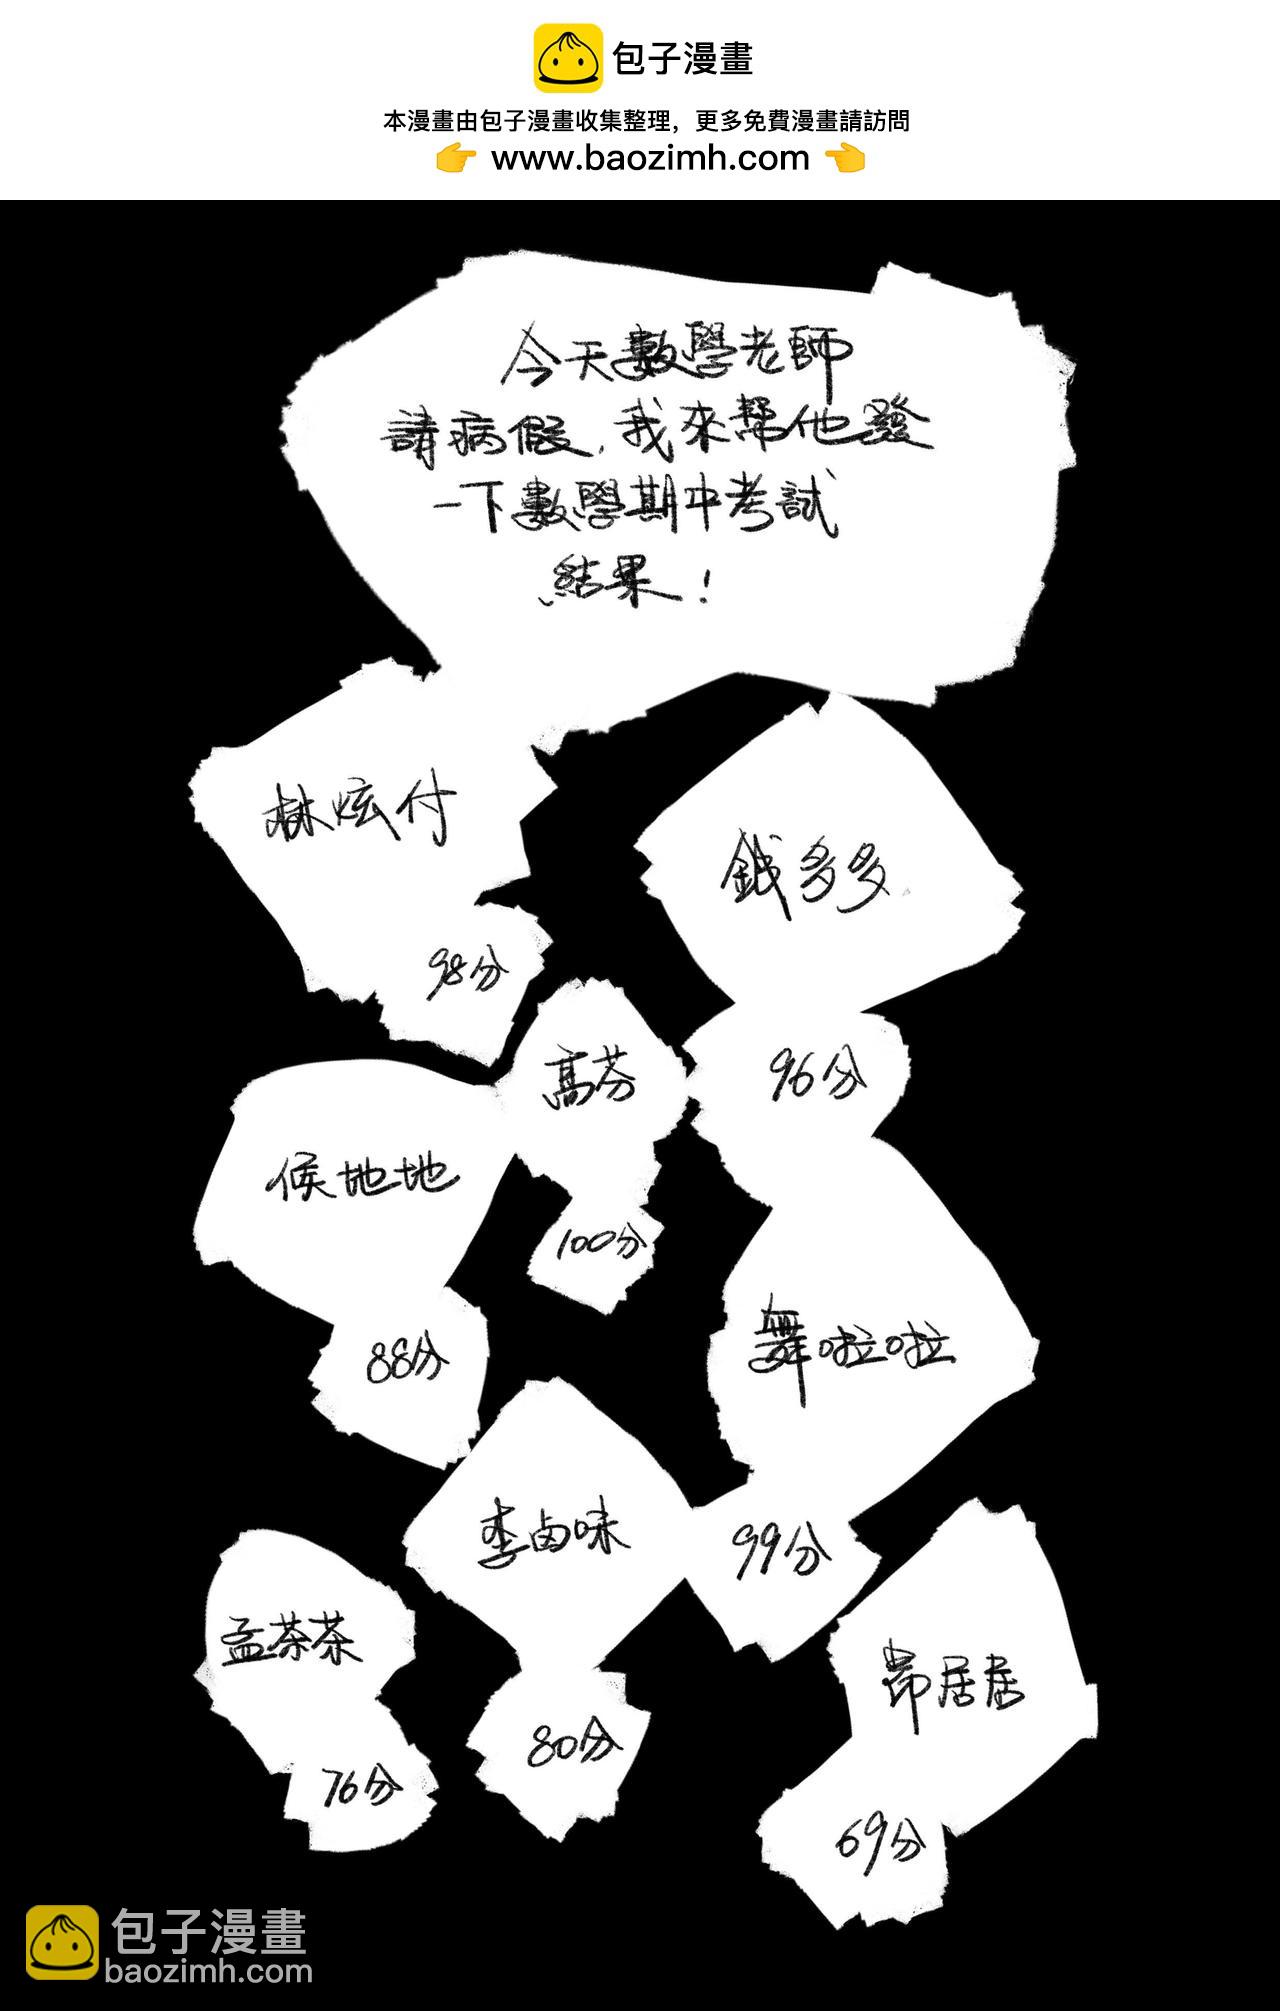 包子漫畫
本漫畫由包子漫畫收集整理，更多免費漫畫請訪問
👉 www.baozimh.com 👈
今天數學老師
請病假，我來幫他發
一下數學期中考試
結果！
林炫付
98分
錢多多
96分
高芬
100分
候地地
88分
舞啦啦
99分
李鹵味
80分
孟茶茶
76分
昴居居
69分
包子漫畫
baozimh.com